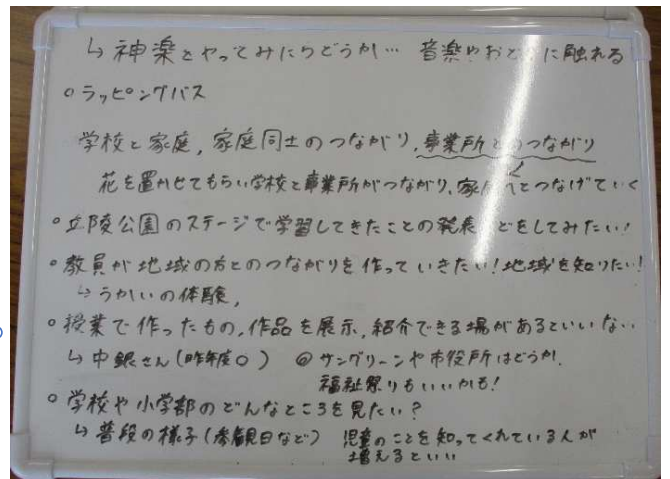 ↳ 神楽とやってみたらどうか… 音楽やお に触れる
○ラッピングバス
学校と家庭,家庭同士のつながり,事業所とのつながり
花を置かせてもらい学校と事業所がつながり,家 とつなげていく
○立陵公園のステージで学習してきたことの発表 どをしてみたい!
○教員が地域の方とのつながりを作っていきたい!地域を知りたい!
↳うかいの体験,
○授業で作ったもの,作品を展示,紹介できる場があるといいな
↳中銀さん(昨年度○) @サングリーンや市役所はどうか.
福祉祭りもいいかも!
○学校や小学部のどんなところを見たい?
↳普段の様子(参観日など) 児童のことを知ってくれている人が
増えるといい